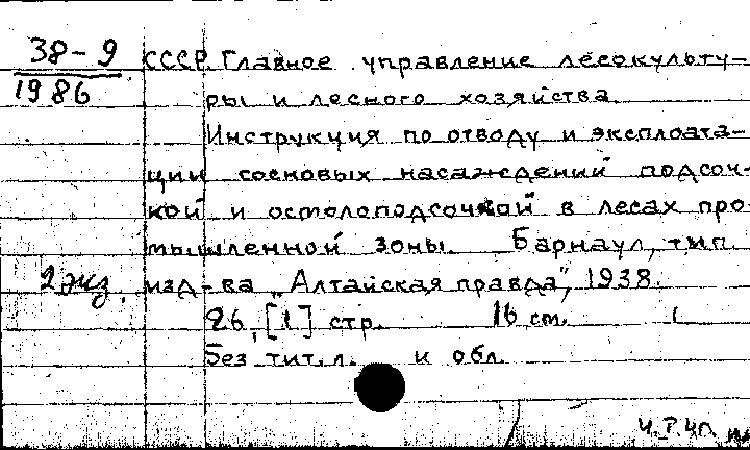 38-9 СССР. Главное управление лесокульту-
1986 ры и лесного хозяйства.
Инструкция по отводу и эксплоата-
ции сосновых насаждений подсоч-
кой и осмолоподсочкой в лесах про-
мышленной зоны. Барнаул, тип.
2 экз. изд-ва "Алтайская правда", 1938.
26, [1] стр. 16 см.
Без тит. л. и обл.